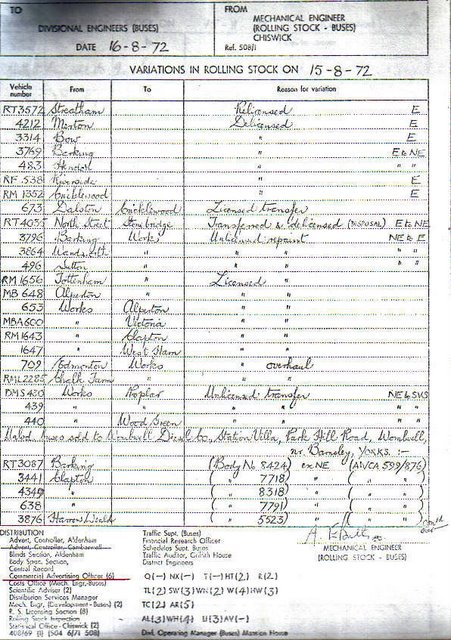 TO
FROM
DIVISIONAL ENGINEERS (BUSES)
MECHANICAL ENGINEER
(ROLLING STOCK - BUSES)
CHISWICK
DATE 16-8-72
Ref. 508/1
VARIATIONS IN ROLLING STOCK ON 15-8-72
Vehicle number From To Reason for variation
RT3572 Streatham Relicensed E
4212 Merton Delicensed E
3314 Bow " E
3769 Barking " E & NE
483 Hendon "
RF 538 Riverside " E
RM 1352 Cricklewood " E
673 Dalston Cricklewood Licensed transfer
RT4055 North Street Stonebridge Transferred & delicensed (DISPOSAL) E & NE
3796 Barking Works Unlicensed repaint NE & E
3864 Wandsworth " " " " "
496 Sutton " " " " "
RM 1656 Tottenham " Licensed "
MB 648 Alperton " " "
653 Works Alperton " "
MBA600 " Victoria " "
RM1643 " Clapton " "
1647 " West Ham " "
709 Edmonton Works " overhaul
RML2285 Chalk Farm " " "
DMS 430 Works Poplar Unlicensed transfer NE & SMS
439 " " " " " "
440 " Wood Green " " " "
buses sold to Wombwell Diesel Co, Station Villa, Park Hill Road, Wombwell,
nr. Barnsley, YORKS. :-
RT3087 Barking (Body No 8424) ex NE (AW/CA 599/876)
3441 Clapton ( " 7718) " ( " )
4349 " ( " 8318) " ( " )
638 " ( " 7791) " ( " )
3876 Harrow Weald ( " 5523) " ( " )
DISTRIBUTION
Advert. Controller, Aldenham
Advert. Controller, Camberwell
Blinds Section, Aldenham
Body Span. Section,
Central Record
Commercial Advertising Officer (6)
Costs Office (Mech. Engr. Buses)
Scientific Adviser (2)
Distribution Services Manager
Mech. Engr. (Development - Buses) (2)
R. S. Licensing Section (8)
Rolling Stock Inspection
Statistical Office - Chiswick (2)
408/69 (1) (504 6/71 508)
Traffic Supt. (Buses)
Financial Research Officer
Schedules Supt. Buses
Traffic Auditor, Griffith House
District Engineers
Q(-) NX(-) T(-) HT(2) R(2)
TL(2) SW(3) WN(2) W(4) HW(3)
TC(2) AR(5)
AL(3) WH(4) U(3) AV(-)
Divl. Operating Manager (Buses) Mansion House
MECHANICAL ENGINEER
(ROLLING STOCK - BUSES)